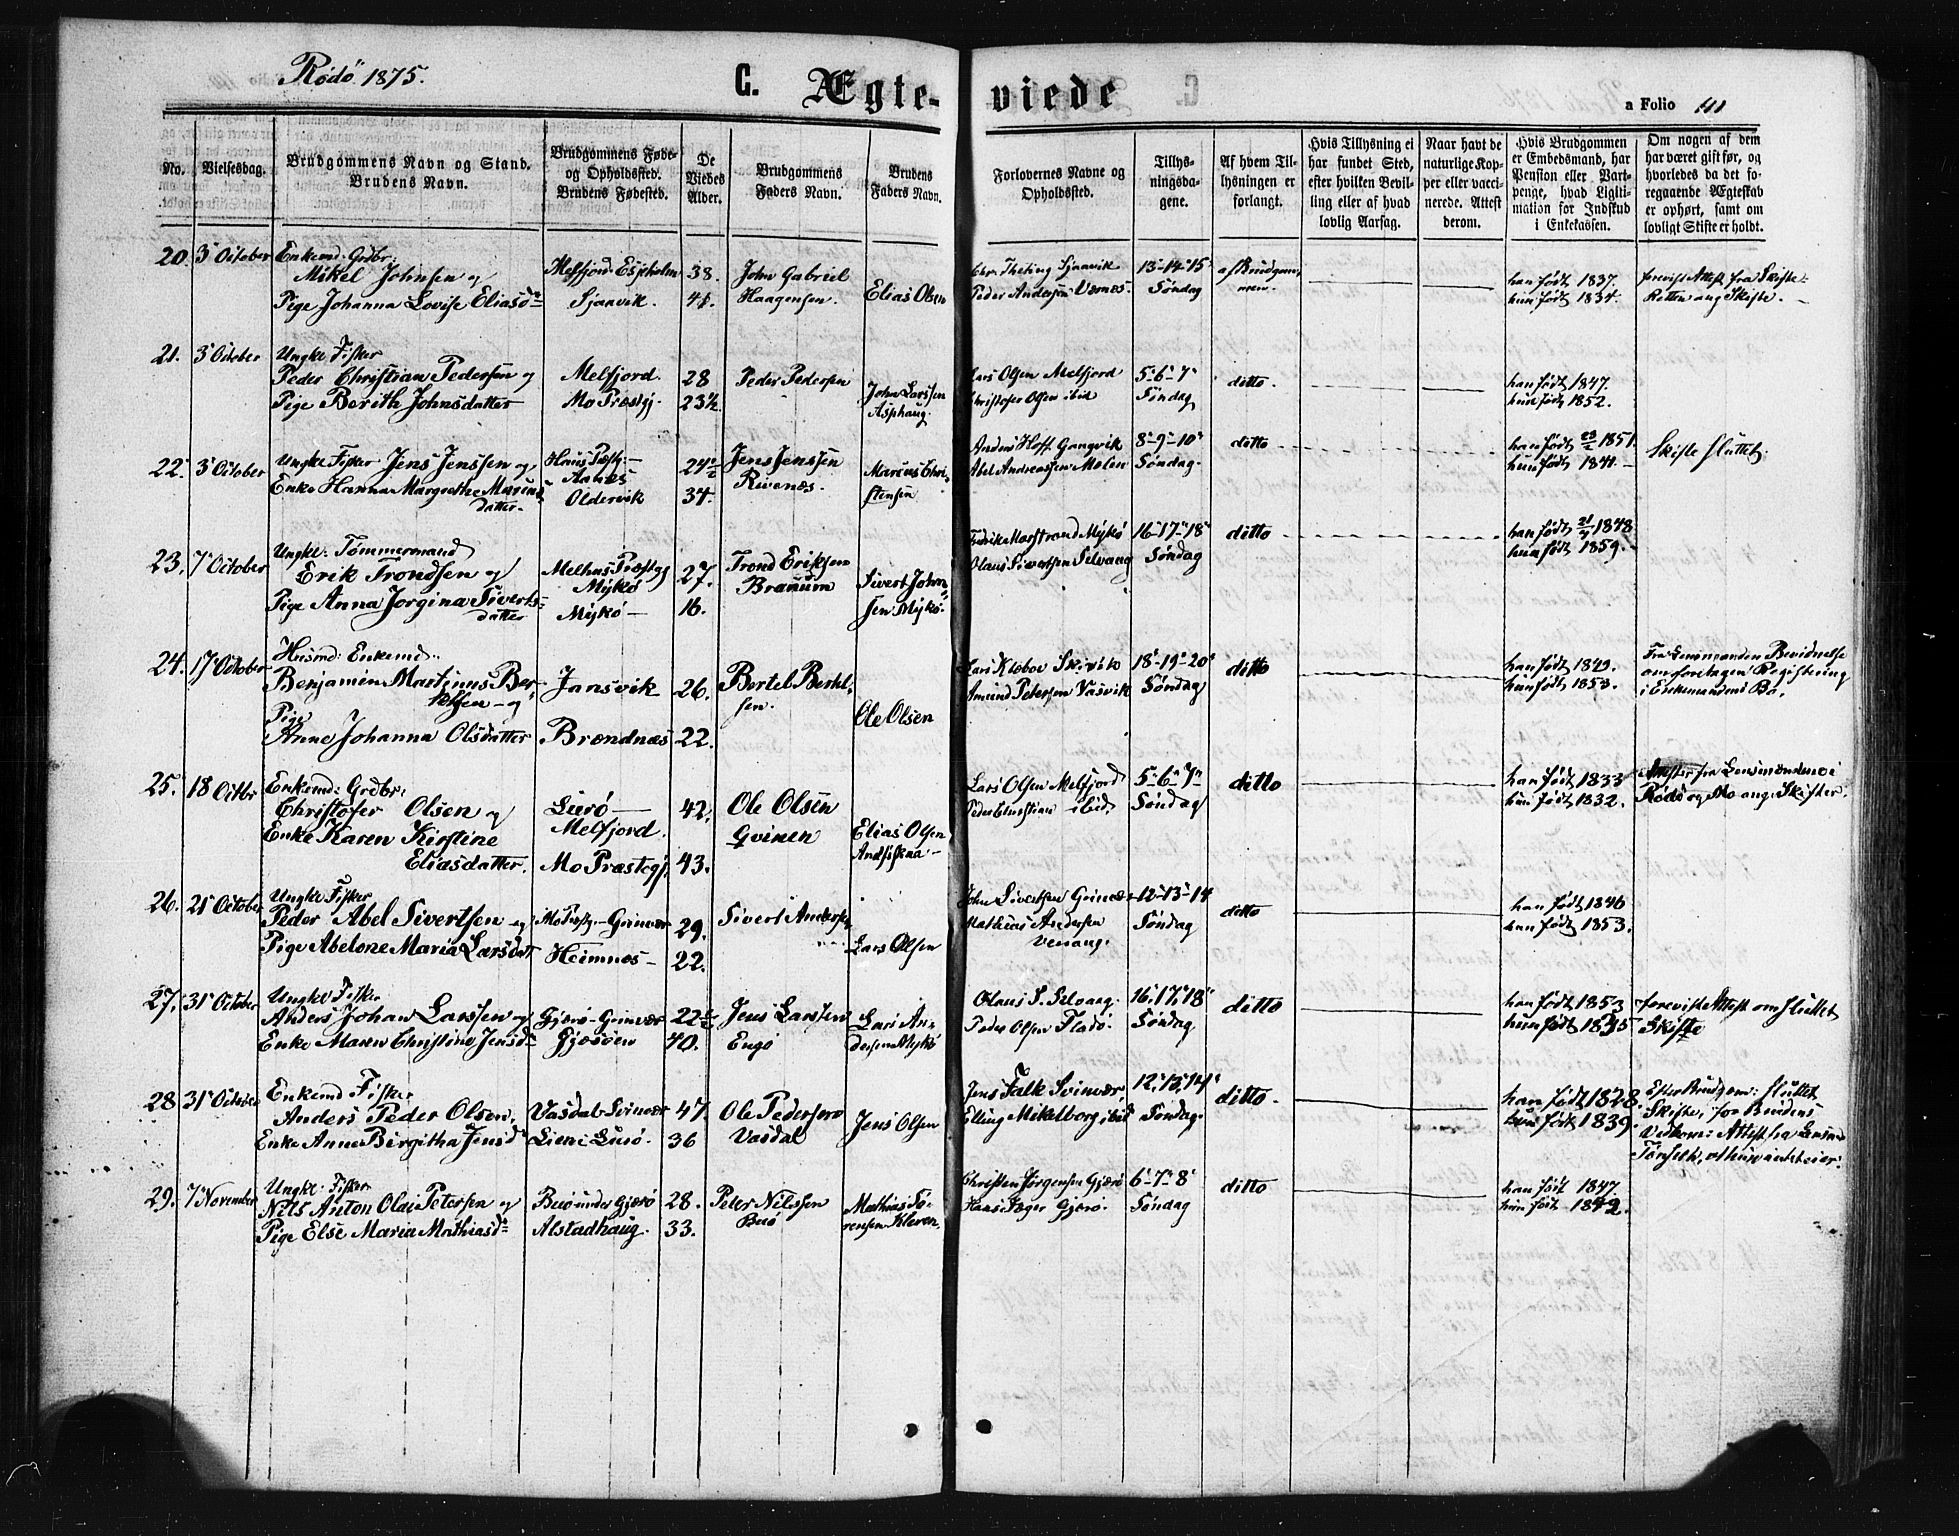 Rødø 1875.
G. Ægte-
viede
a Folio 141
No.
Vielsesdag.
Brudgommens Navn og Stand.
Brudens Navn.
Brudgommens Føde-
og Opholdssted.
Brudens Fødested.
De
Viedes
Alder.
Brudgommens
Faders Navn.
Brudens
Faders Navn.
Forlovernes Navne og
Opholdssted.
Tillys-
ningsda-
gene.
Af hvem Til-
lysningen er
forlangt.
Hvis Tillysning ei
har fundet Sted,
efter hvilken Bevil-
ling eller af hvad
lovlig Aarsag.
Naar havt de
naturlige Kop-
per eller vacci-
nerede. Attest
derom.
Hvis Brudgommen
er Embedsmand, har
Pension eller Vart-
penge, hvad Ligiti-
mation for Indskud
i Enkekassen.
Om nogen af dem
har været gift før, og
hvorledes da det fo-
regaaende Ægteskab
er ophørt, samt om
lovligt Skifte er holdt.
20. 3 October Enkemd: Grdbr:
Mikel Johnsen og
Pige Johanna Lovise Eliasd
Melfjord-Esjeholm
Sjaavik.
38.
41.
John Gabriel
Haagensen.
Elias Olsen
Chr. Theting Sjaavik
Peder Andersen Værnes.
13-14-15
Søndag
af Brudgom-
men.
han født 1837.
hun født 1834.
forevist Attest fra Skifte-
Retten ang Skifte.
21. 3 October Ungkl Fisker
Peder Christian Pedersen og
Pige Berith Johnsdatter
Melfjord.
Mo Præstgj.
28
23½
Peder Pedersen
John Larssen
Asphaug.
Lars Olsen Melfjord
Christofer Olsen ibid
5-6-7
Søndag
ditto.
han født 1847.
hun født 1852.
22. 3 October Ungkl Fisker Jens Jenssen og
Enke Hanna Margrethe Marius
datter.
Aanes
Oldervik
24½
34.
Jens Jenssen
Rivenæs.
Marius Chri-
stensen
Anders Hoff Gangvik
Abel Andreassen Melen
8-9-10
Søndag.
ditto
han født 1851.
hun født 1841.
Skifte sluttet.
23. 7 October Ungkl. Tømmermand
Erik Trondsen og
Pige Anna Jorgina Siverts-
datter
Melhus Præstgj
Mykø
Mykø
27.
16.
Trond Eriksen
Branum
Sivert John-
sen Mykø.
Fredrik Marstrand Mykø
Olaus Sivertsen Selvang
16-17-18
Søndag
ditto
han født 1848
hun født 1859.
24. 17 October Husmd: Enkemd.
Benjamin Martinus Ber-
telsen og
Pige
Anne Johanna Olsdatter
Jansvik
Brændnæs
26.
22.
Bertel Bertel-
sen.
Ole Olsen
Amund Petersen Vasvik
18-19-20
Søndag
ditto
han født 1849.
hun født 1853.
Fra Lensmanden Bevidnelse
om foretagen Registrering
i Enkemandens Bo.
25. 18 Octbr Enkemd: Grdbr:
Christofer Olsen og
Enke Karen Kirstine
Eliasdatter.
Lurø
Melfjord.
Mo Præstegj.
42.
43.
Ole Olsen
Gvinen
Elias Olsen
Andfiskaa
Lars Olsen Melfjord
Peder Christian ibid.
5-6-7
Søndag
ditto
han født 1833
hun født 1832.
Attester fra Lensmændene i
Rødø og Mo ang. Skifter.
26. 21 October Ungkl Fisker
Peder Abel Sivertsen og
Pige Abelone Maria Larsdatt
Mo Præstgj. Grinvær
Heimnæs
29.
22.
Sivert Andersen
Lars Olsen
John Sivertsen Grinvær
Mathias Andersen
Venang.
12-13-14
Søndag
ditto
han født 1846
hun født 1853.
27. 31 October Ungkl Fisker
Anders Johan Larssen og
Enke Maren Christine Jensd
Gjerø-Grinvær
Gjæsøen
22½
40.
Jens Larssen
Engø
Lars An-
dersen Mykø
Olaus S. Selvang.
Peder Olsen Fladø.
16, 17, 18
Søndag
ditto
han født 1853
hun født 1835
foreviste Attest om sluttet
Skifte
28 31 October Enkemd Fisker
Anders Peder Olsen,
Enke Anne Birgitha Jensd
Vasdal-Svinvær
Lien i Lurø.
47.
36
Ole Pedersen
Vasdal
Jens Olsen
Jens Falk Svinvær
Elling Mikalborg ibid
12, 13, 14
Søndag.
ditto.
han født 1828.
hun født 1839.
Efter Brudgom: sluttet
Skifte, for Brudens
Vedkom: Attest fra Lensm
29. 7 November Ungkl. Fisker
Nils Anton Olai Petersen og
Pige Else Maria Mathiasd
Buø under Gjerø
Alstadhaug.
28.
33.
Peter Nilssen
Buø
Mathias Sø-
rensen Kleven.
Christen Jørgensen Gjerø
Hans Jæger Gjerø.
6-7-8
Søndag
ditto
han født 1847
hun født 1842.